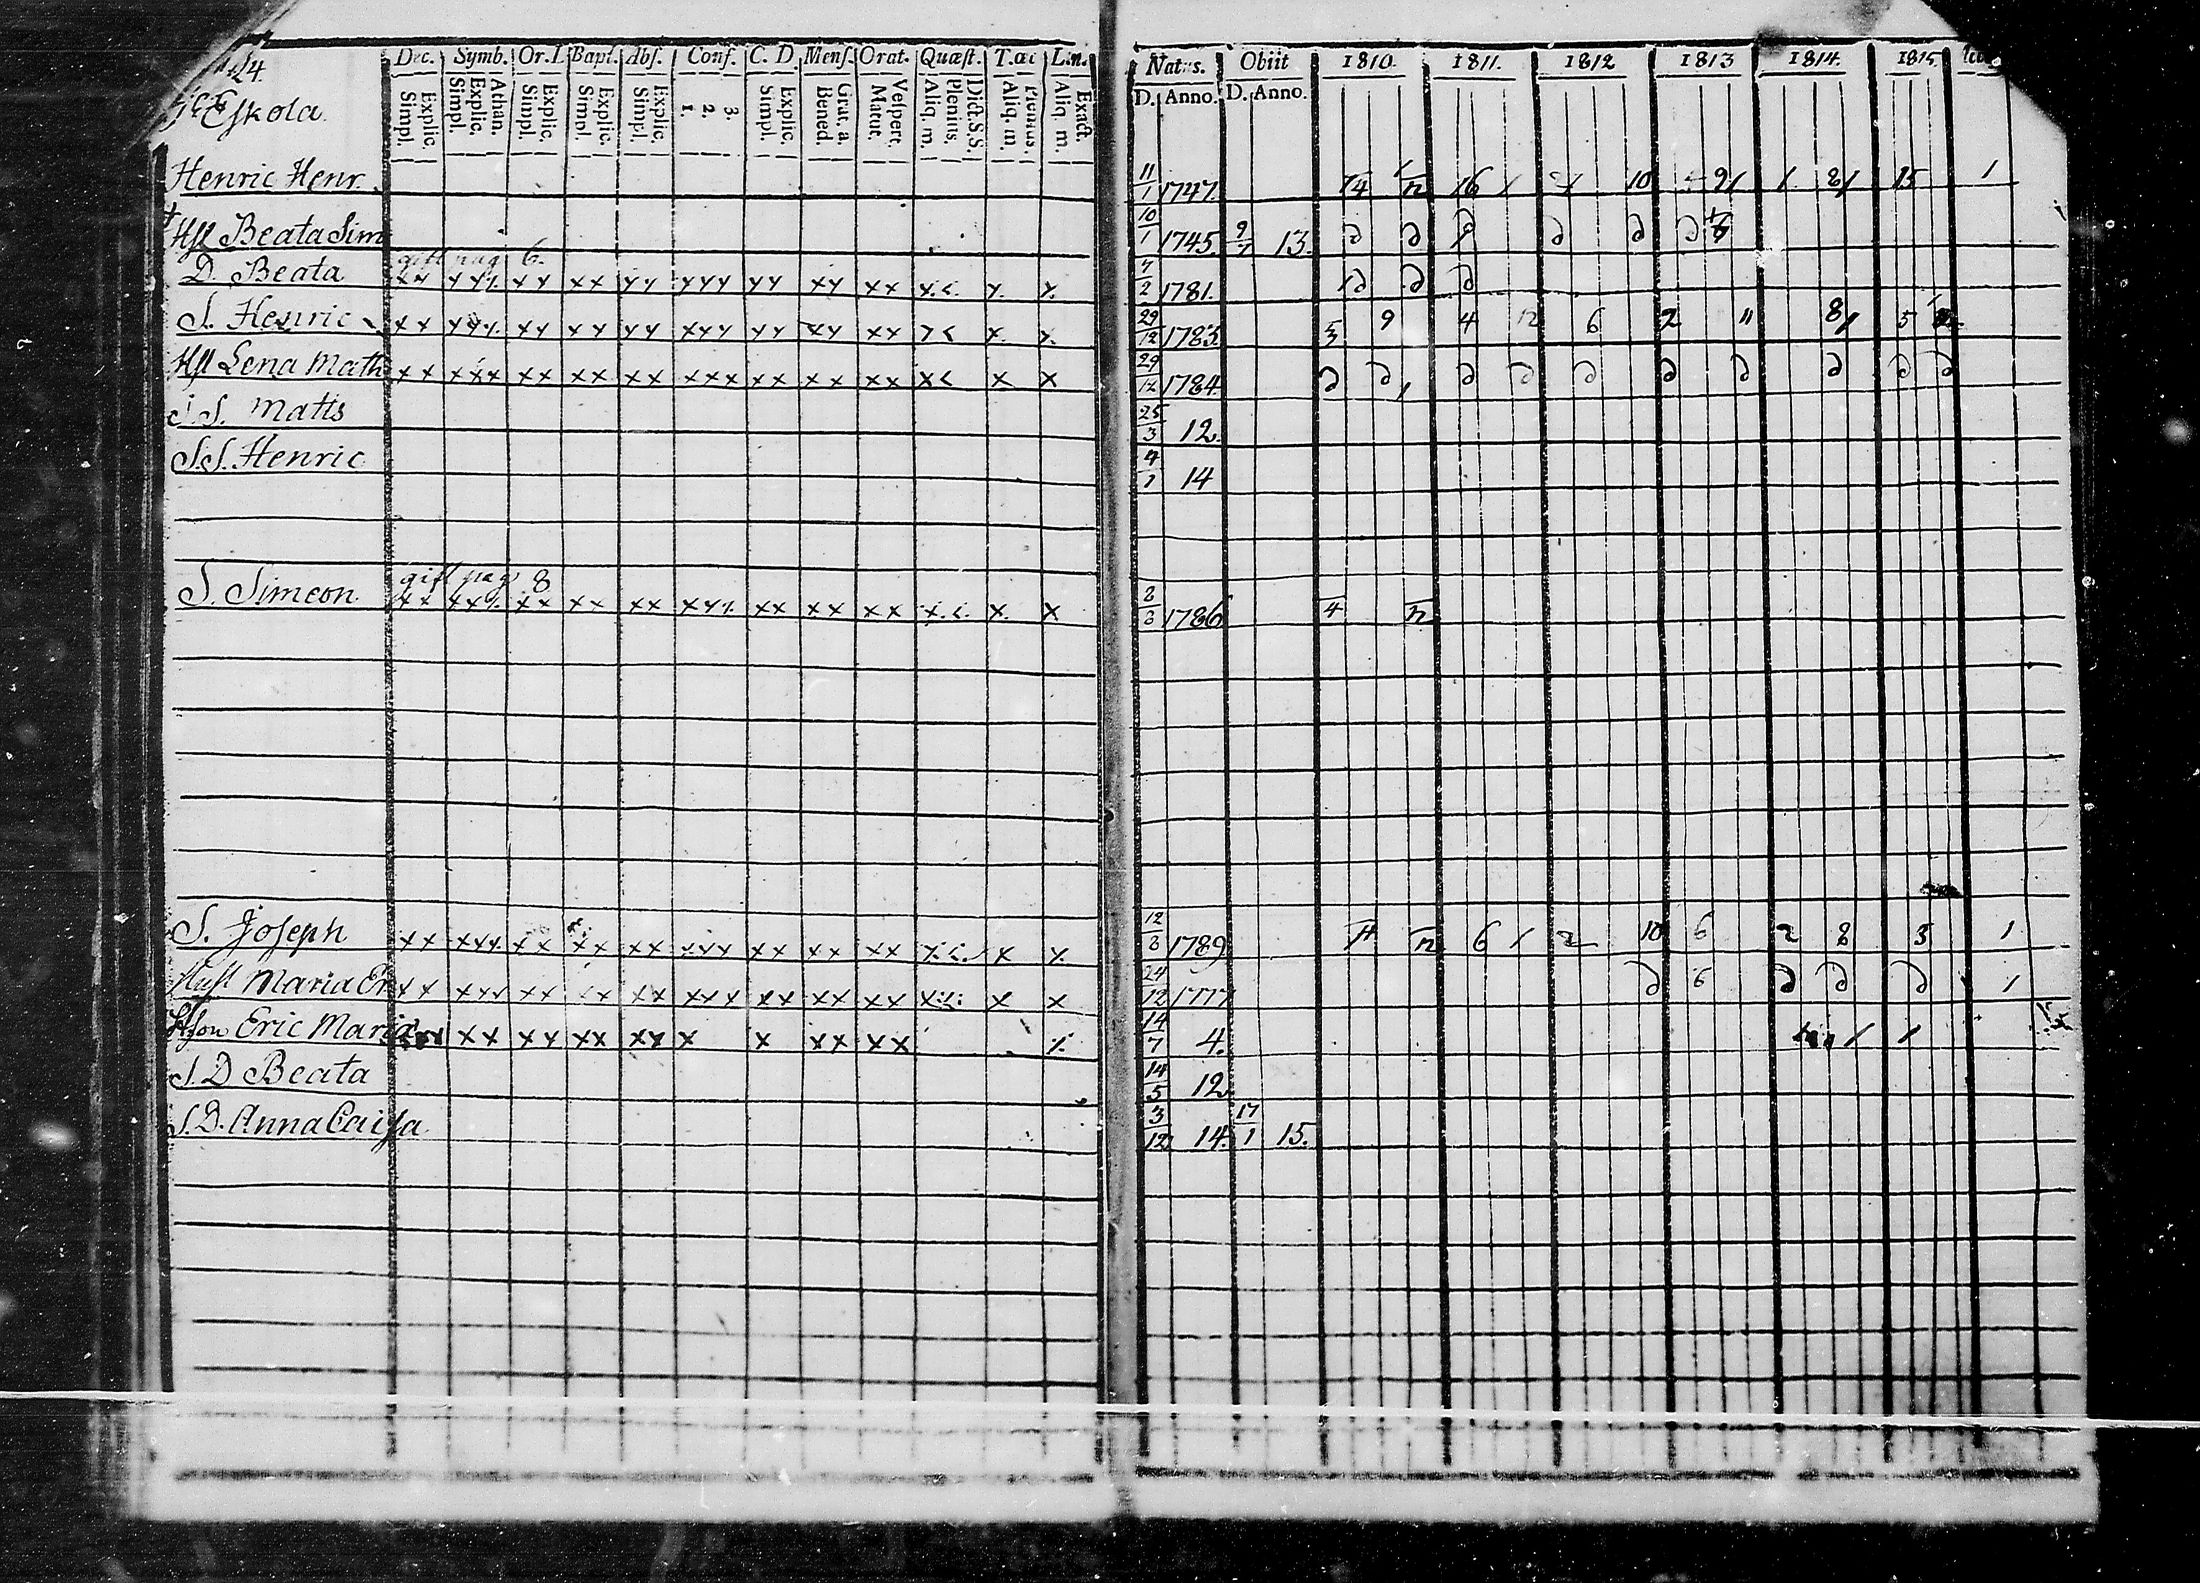 Dec. Symb. Or. D. Bapt. Abs. Conf. C. D. Mens. Orat. Quæst. T. œc L.n. Natus. Obiit 1810. 1811. 1812 1813 1814. 1815.
Explic. Simpl. Athan. Explic. Simpl. Explic. Simpl. Explic. Simpl. Explic. Simpl. 3. 2. 1. Explic. Simpl. Grat. a. Bened. Vespert. Matut. Dict. S. S. Plenius. Aliq. m. Plenius. Aliq. m. Exact. Aliq. m. D. Anno. D. Anno.
Eskola.
Henric Henr. 11/1 1747. 14 n 16 1 10 1 8/ 15 1
Hst Beata Sim 10/1 1745. 9/7 13. D D D D D
gift pag. 6.
D. Beata xx xxx xx xx xx xxx xx xx xx x.<. x. x. 4/2 1781. D D D
S. Henric xx xxx xx xx xx xxx xx xx xx x< x. x. 29/12 1783. 5/3 9 4 12 6 2 11 8/ 5
Hst Lena Math xx xxx xx xx xx xxx xx xx xx x< x x 29/12 1784. D D D D D D D D D D
S. S. Matts 25/3 12.
S.S. Henric 4/1 14
gift pag. 8
S. Simeon xx xxx xx xx xx xxx xx xx xx x.<. x. x 2/2 1786 4 n
S. Joseph xx xxx xx xx xx xxx xx xx xx x.<. x x. 12/8 1789 14 n 6 1 2 10 6 2 8 3 1
Hust Maria Er xx xxx xx xx xx xxx xx xx xx x.<. x x 24/12 1777 D 6 D D D 1
Hson Eric Maria xx xx xx xx x x xx xx x. 14/7 4. 1 1
S. D Beata 14/5 12.
S. D. Anna Caisa 3/12 14. 17/1 15.